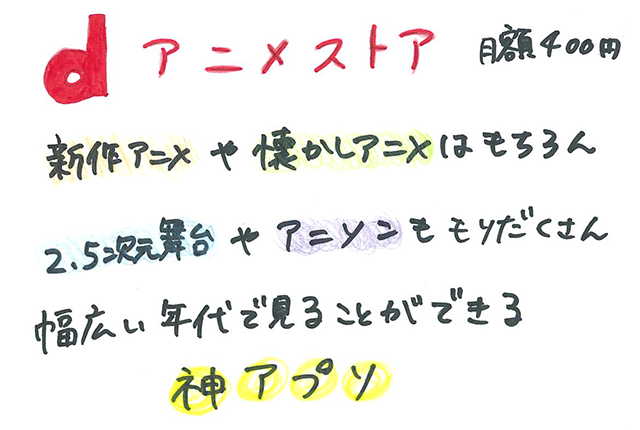 d アニメストア 月額400円
新作アニメや懐かしアニメはもちろん
2.5次元舞台やアニソンももりだくさん
幅広い年代で見ることができる
神アプリ